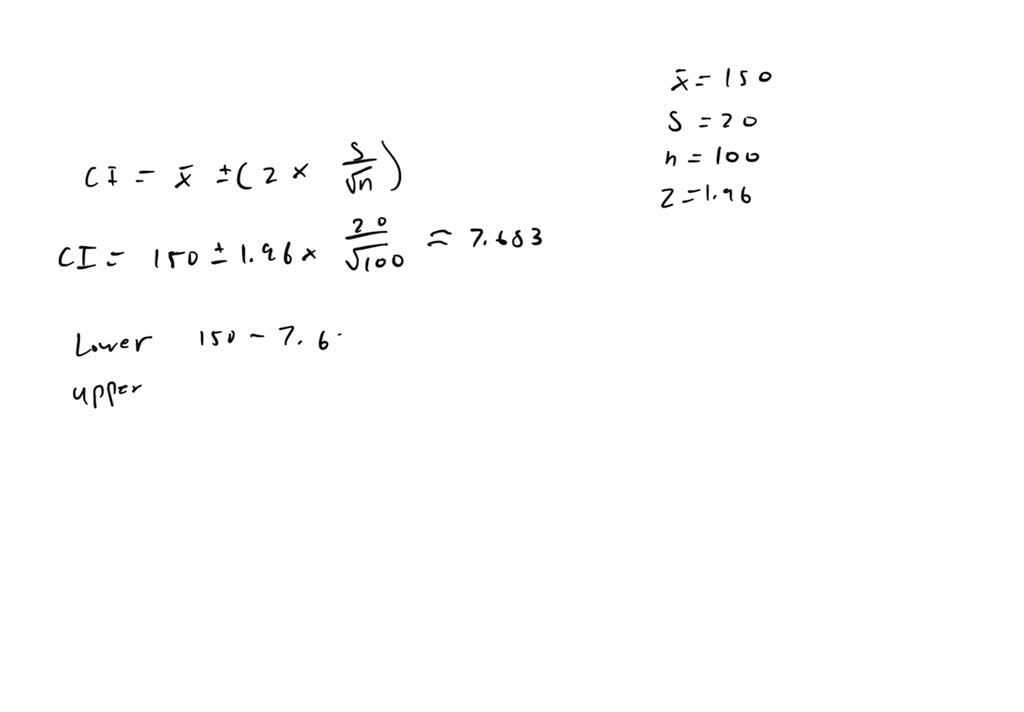 x̄ = 150
S = 20
n = 100
Z = 1.96
CI = x̄ ± (Z × S/√n)
CI = 150 ± 1.96 × 20/√100 ≈ 7.683
Lower 150 - 7.6
upper